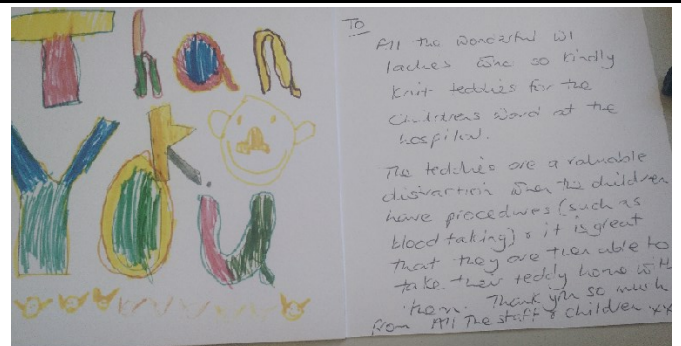 Than
k.
You
To
All the wonderful WI
ladies who so kindly
knit teddies for the
childrens ward at the
hospital.
The teddies are a valuable
distraction when the children
have procedures (such as
blood taking) & it is great
that they are then able to
take their teddy home with
them. Thank you so much
from All the staff & children xx